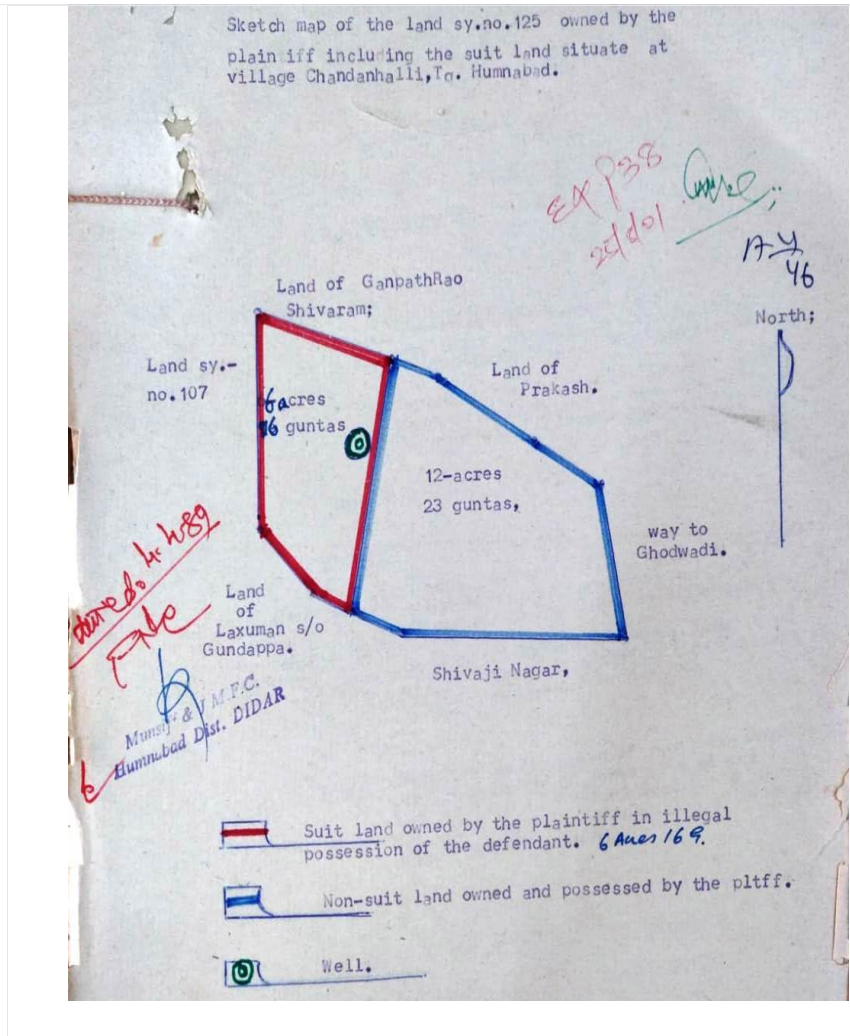 Sketch map of the land sy.no.125 owned by the
plain iff including the suit land situate at
village Chandanhalli,Tq. Humnabad.
EXP38
A-4
46
North;
Land of GanpathRao
Shivaram;
Land sy.-
no.107
Land of
Prakash.
6 acres
16 guntas
12-acres
23 guntas,
way to
Ghodwadi.
Land
of
Laxuman s/o
Gundappa.
Shivaji Nagar,
Munsif & J M.F.C.
Humnabad Dist. DIDAR
Suit land owned by the plaintiff in illegal
possession of the defendant. 6 Acres 16 G.
Non-suit land owned and possessed by the pltff.
Well.